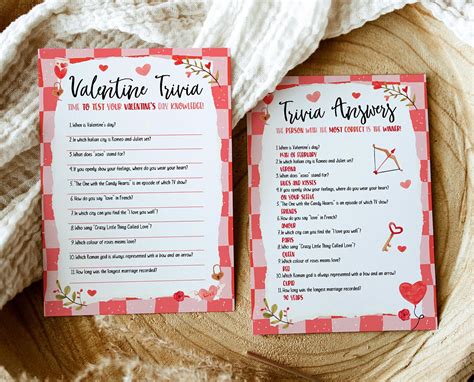 Valentine Trivia
TIME TO TEST YOUR VALENTINE'S DAY KNOWLEDGE!
1.When is Valentine's day?
2.In which Italian city is Romeo and Juliet set?
3.What does 'xoxo' stand for?
4.If you openly show your feelings, where do you wear your heart?
5."The One with the Candy Hearts" is an episode of which TV show?
6.How do you say "love" in French?
7.In which city can you find the "I love you wall"?
8.Who sang "Crazy Little Thing Called Love"?
9.Which colour of roses means love?
10.Which Roman god is always represented with a bow and an arrow?
11.How long was the longest marriage recorded?
Trivia Answers
THE PERSON WITH THE MOST CORRECT IS THE WINNER!
1.When is Valentine's day?
14TH OF FEBRUARY
2.In which Italian city is Romeo and Juliet set?
VERONA
3.What does 'xoxo' stand for?
HUGS AND KISSES
4.If you openly show your feelings, where do you wear your heart?
ON YOUR SLEEVE
5."The One with the Candy Hearts" is an episode of which TV show?
FRIENDS
6.How do you say "love" in French?
AMOUR
7.In which city can you find the "I love you wall"?
PARIS
8.Who sang "Crazy Little Thing Called Love"?
QUEEN
9.Which colour of roses means love?
RED
10.Which Roman god is always represented with a bow and an arrow?
CUPID
11.How long was the longest marriage recorded?
90 YEARS